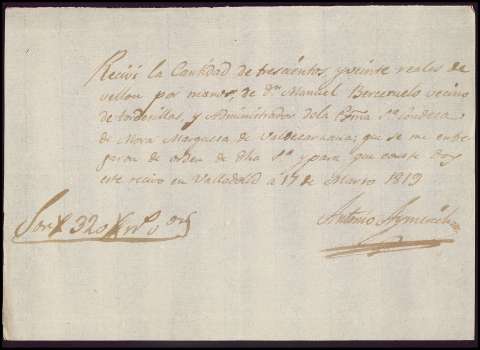 Recivi la Cantidad de trescientos, y veinte reales de
vellon por mano, de Dn Manuel Berceruelo vecino
de tordesillas, y Administrador de la Exma Sra Condesa
de Mora Marquesa de Valdecarzana; que se me entre
garon de orden de dha Sra y para que conste doy
este recivo en Valladolid a 17 de Marzo 1819
Son 320 rs von
Antonio